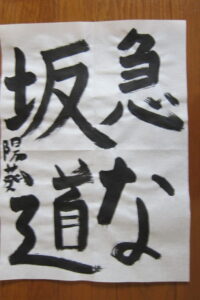 急な
坂道
陽葵